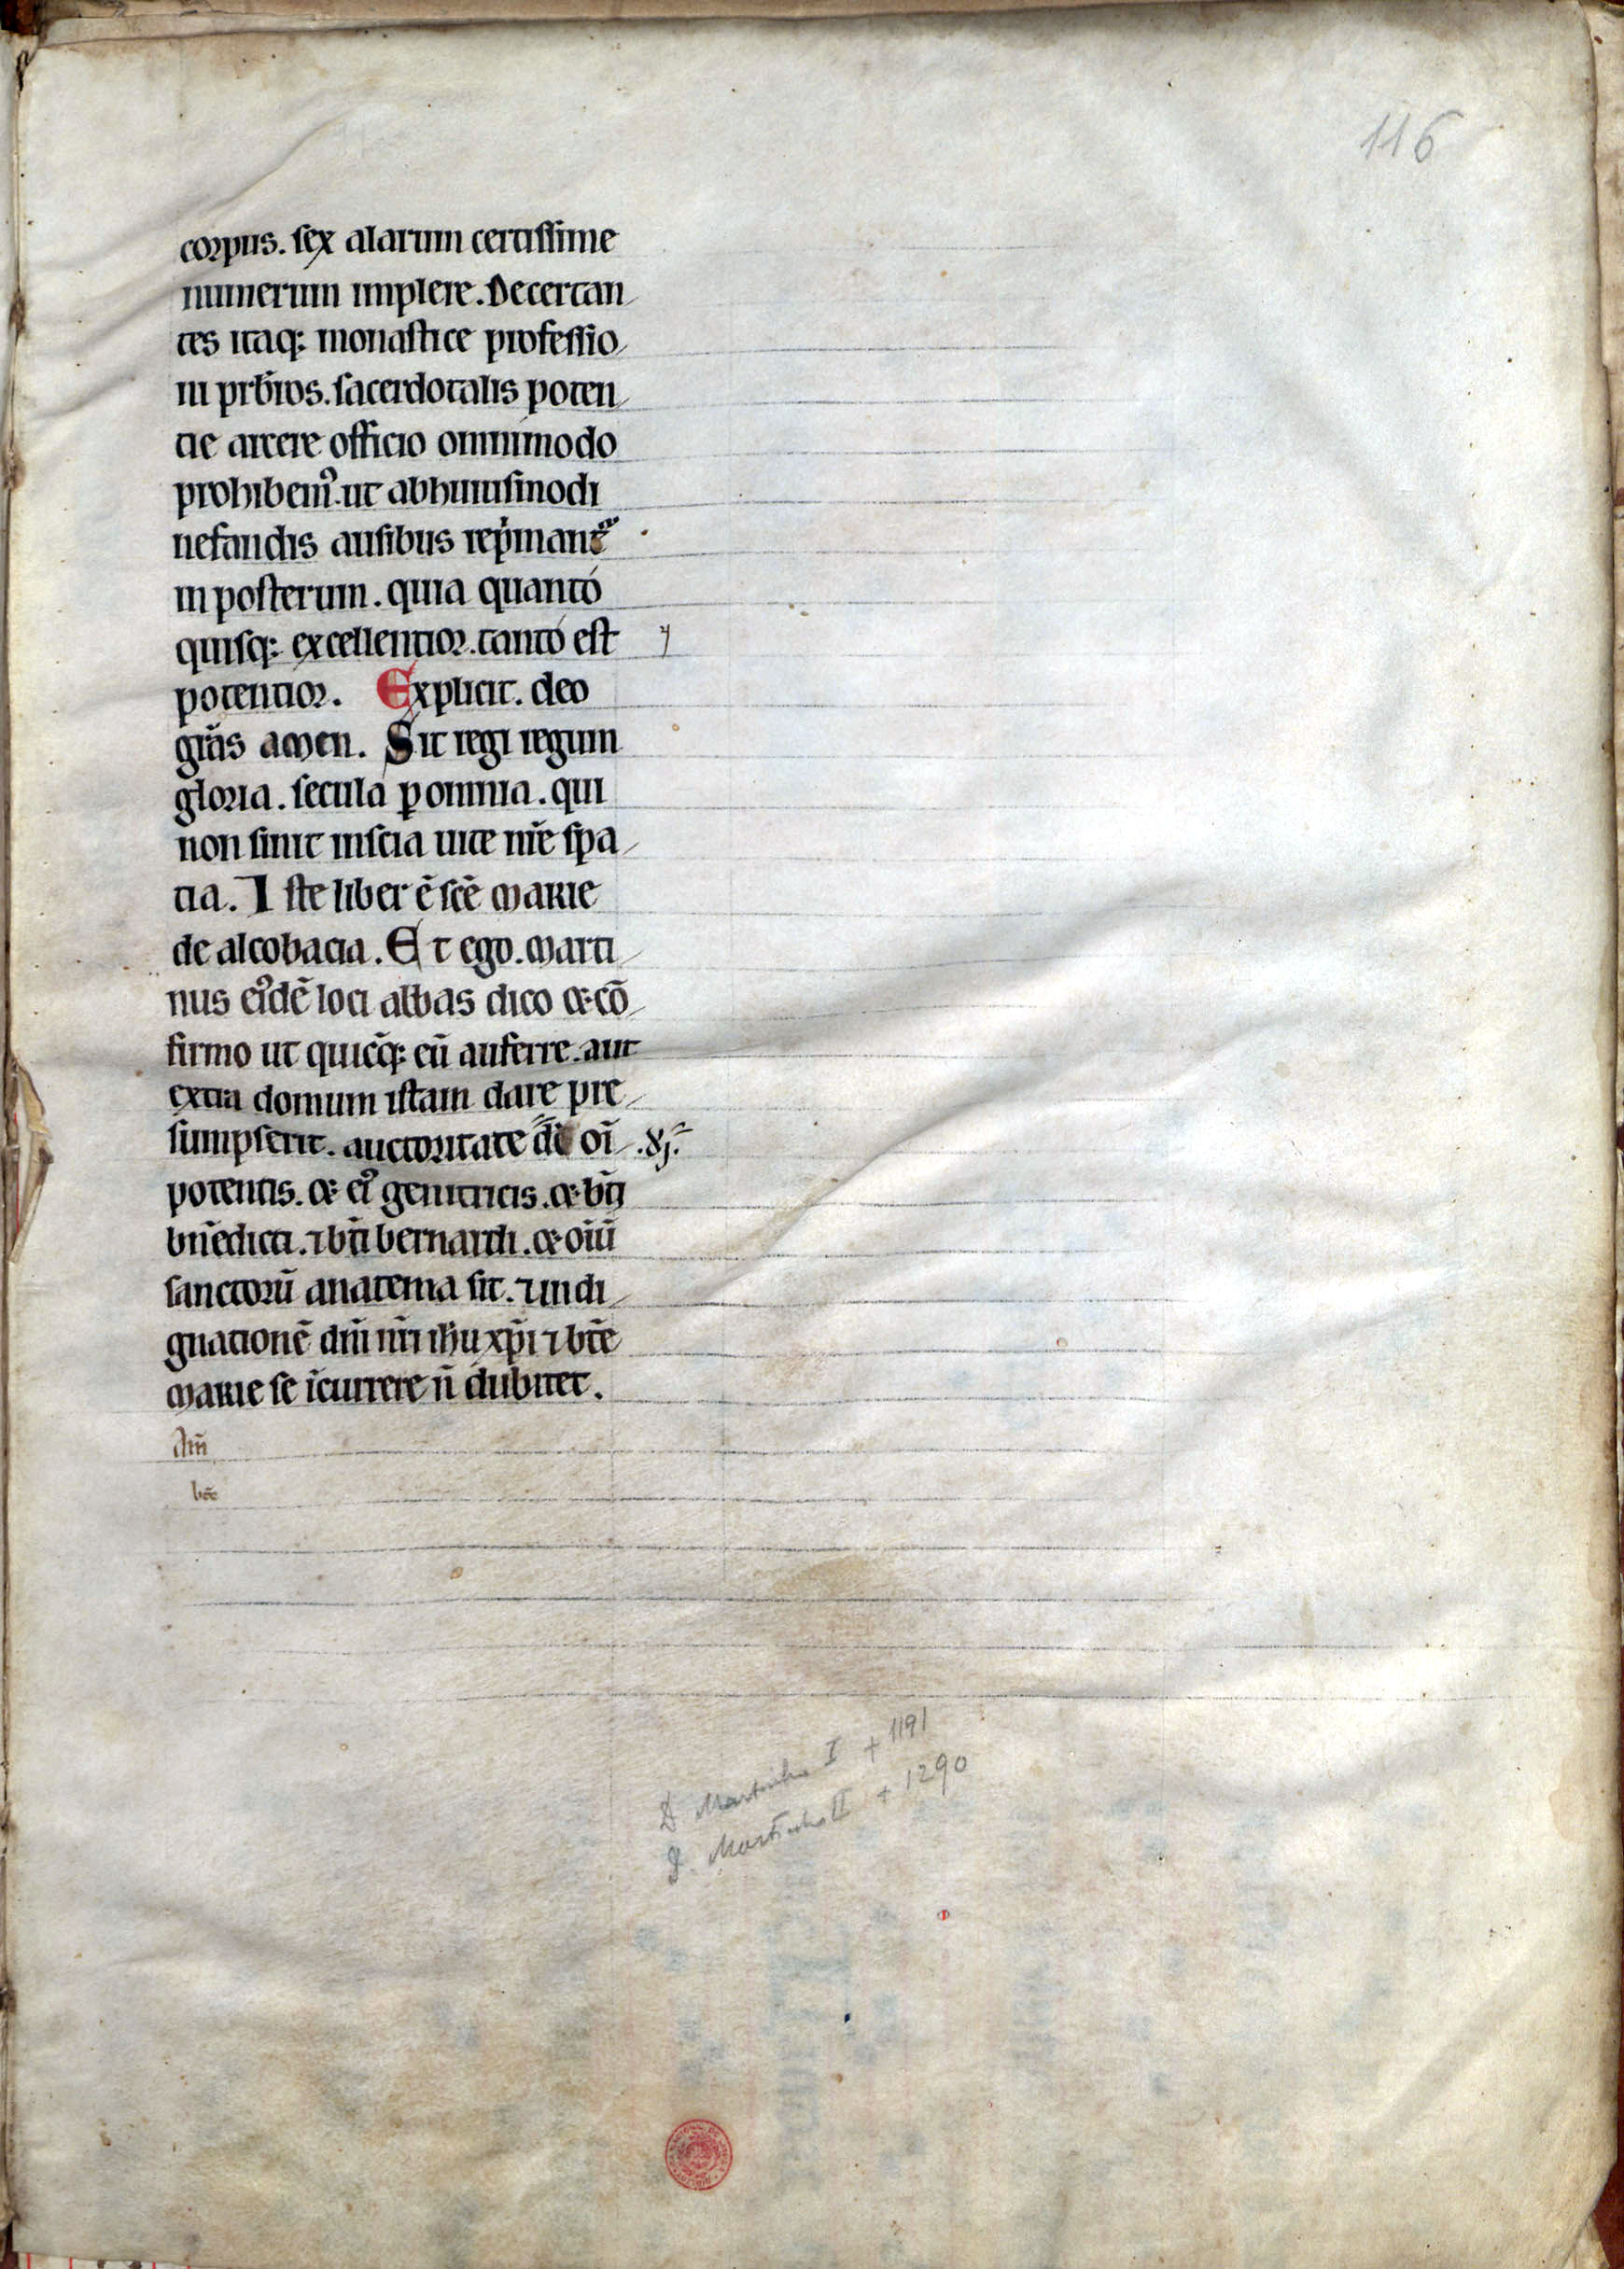 116
corpus. sex alarum certissime
numerum implere. Decertan
tes itaq: monastice professio
ni prb̄ros. sacerdotalis poten
tie arcere officio omnimodo
prohibemꝰ. ut abhuiusmodi
nefandis ausibus rep̍mant᷑
in posterum. quia quantó
quisq: excellentior. tantó est
potentior. Explicit. deo
gr̄as amen. Sit regi regum
gloria. secula ꝑ omnia. qui
non sinit inscia uite nr̄e spa
tia. Iste liber ē sc̄e marie
de alcobacia. Et ego. marti
nus eiꝰdē loci abbas dico & cō
firmo ut quicq̄: eū auferre. aut
extra domum istam dare pre
sumpserit. auctoritate dī oī
potentis. & eiꝰ genitricis. & bt̄i
bn̄edicti. ⁊ bt̄i bernardi. & oīū
sanctorū anatema sit. ⁊ indi
gnationē dn̄i nr̄i ih̄u xp̄i ⁊ bt̄e
marie se īcurrere n̄ dubitet.
Am̄
D Martinho I + 1191
D. Martinho II + 1290